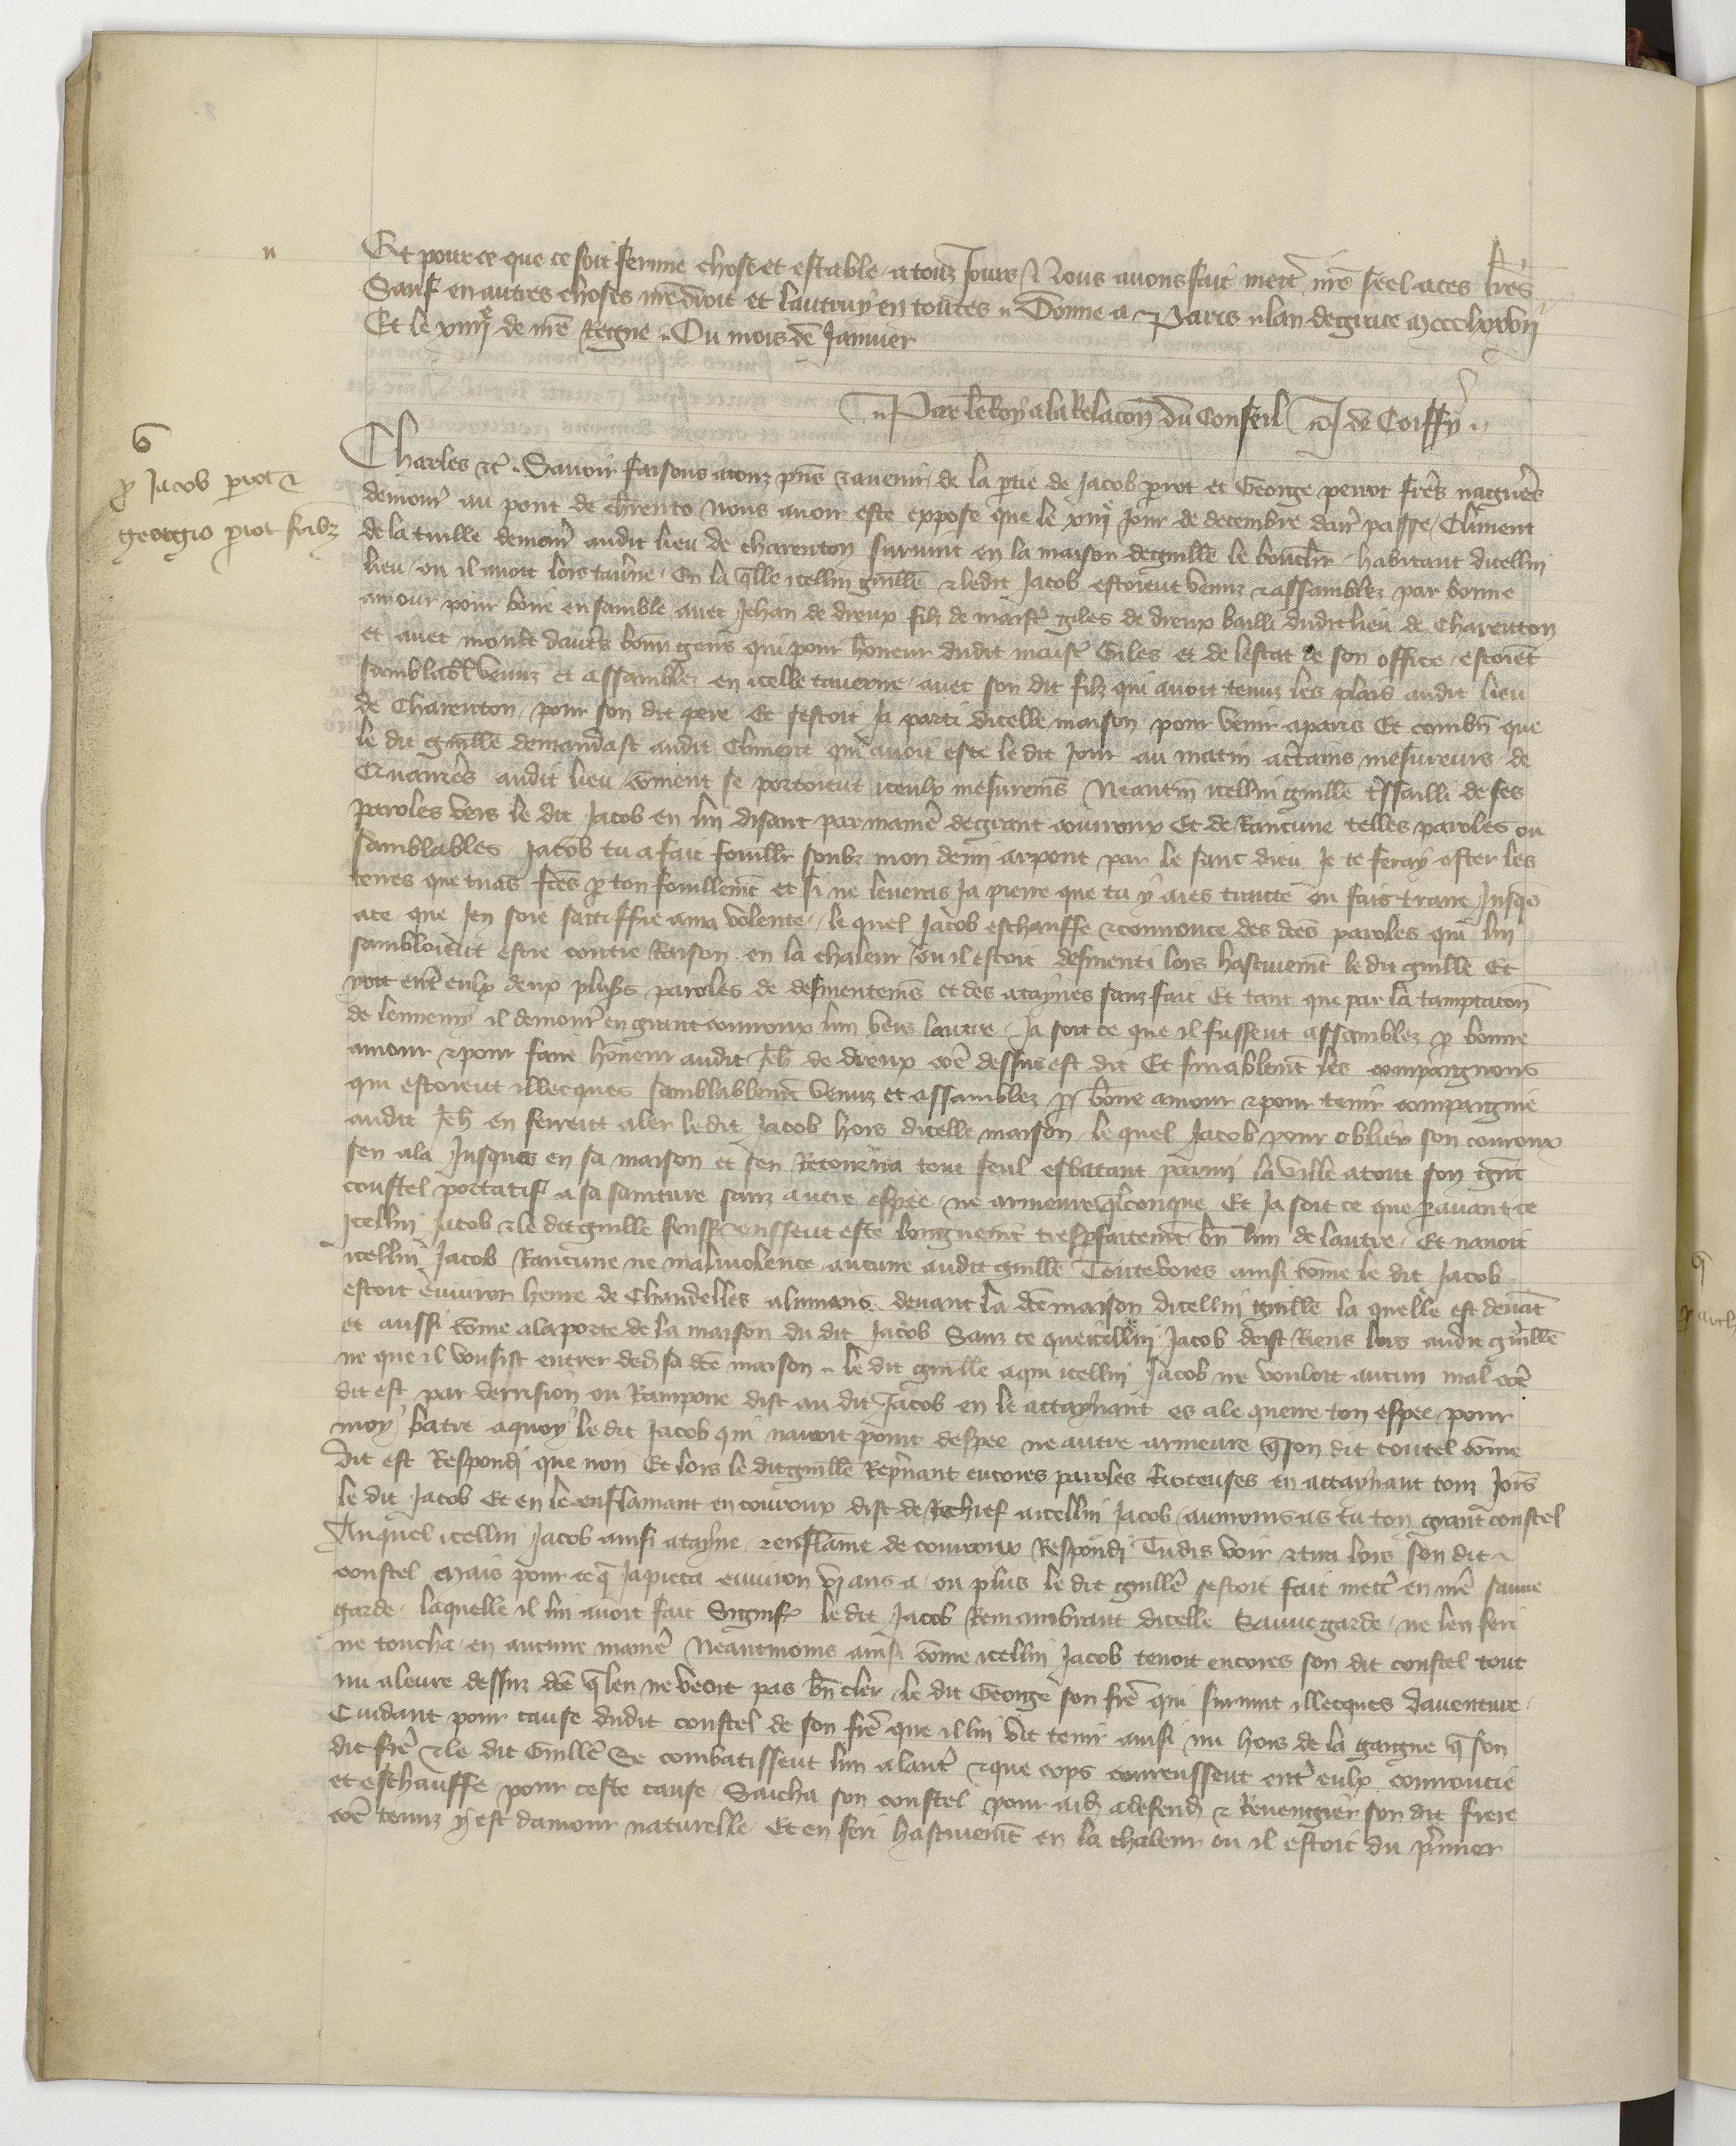 Et pour ce que ce soit ferme chose et estable a touz jours Nous avons fait mettr nre seel a ces lres
Sauf en autres choses nre droit et lautruy en toutes Donne a Paris lan de grace mccclxxvii
Et le xiiiie de nre Regne Ou mois de Janvier
Par le Roy a la Relacon du Conseil J de Coiffy
6
p Jacob perot &
georgio perot frabz
Charles &c Savoir faisons a touz pns & avenir de la ptie de Jacob perot et George perrot freres nagueres
demour au pont de chrento nous avoir este expose que le xiiie jour de decembre derr passe Climent
de la tuille demour audit lieu de charenton survint en la maison de guille le bouchr habitant dicellui
lieu ou il avoit lors taverne En la qlle icellui guille & ledit Jacob estoient venuz & assamblez par bonne
amour pour boire ensamble avec Jehan de dreux filz de maistr giles de dreux bailli dudit lieu de Charenton
et avec moult dautrs bonn gens qui pour honneur dudit maistr Giles et de lestat de son office estoient
samblabl venuz et assamblez en icelle taverne avec son dit filz qui avoit tenuz les plais audit lieu
de Charenton pour son dit pere Et sestoit ja parti dicelle maison pour venir a paris Et combn que
le dit guille demandast audit Climent qui avoit este le dit jour au matin a certains mesureurs de
Quarrers audit lieu coment se portoient iceulx mesuremens Neantm icellui guille tressailli de ses
paroles vers le dit Jacob en lui disant par manie de grant courroux Et de Rancune telles paroles ou
samblables Jacob tu a fait fouillr soubz mon demi arpent par le sanc dieu Je te feray oster les
terres que tu as fces p ton fouillemt et si ne leveras ja pierre que tu y aies traicte ou fais traire Jusqs
a ce que jen soie sattiffie a ma volente le quel Jacob eschauffe & courrouce des des paroles qui lui
sambloient estre contre Raison en la chaleur ou il estoit desmenti lors hastivemt le dit guille Et
y ot entr eulx deux plusrs paroles de desmentemens et des ataynes sanz fait Et tant que par la tamptacon
de lennemy il demourr en grant courroux lun vers lautre Ja soit ce que il fussent assamblez p bonne
amour & pour faire honneur audit Jeh de dreux coe dessus est dit Et finablemt les compaignons
qui estoient illecques samblablemt venuz et assamblez p bonne amour & pour tenir compaignie
audit Jeh en firent aler ledit Jacob hors dicelle maison le quel Jacob pour oblier son courroux
sen ala Jusques en sa maison et sen Retourna tout seul esbatant parmi la ville a tout son gnt
coustel portatif a sa sainture sanz autre espee ne armeure qlconque Et ja soit ce que paravant ce
icellui Jacob & le dit guille feussent este longuemt tresparfaitemt bn lun de lautre Et navoit
icellui Jacob Rancune ne malivolence aucune audit guille Toutevoies ainsi come le dit Jacob
estoit environ heure de Chandelles alumans devant la de maison dicellui guille la quelle est devat
et aussi come a la porte de la maison du dit Jacob Sanz ce que icellui Jacob deist Riens lors audit guille
ne que il vousist entrer deds sa de maison le dit guille a qui icellui Jacob ne vouloit aucun mal coe
dit est par derrision ou Rampone dist au dit Jacob en le attaynant es ale querre ton espee pour
moy batre a quoy le dit Jacob qui navoit point despee ne autre armeure q son dit coutel come
dit est Respondi que non Et lors le dit guille Reprnant encores paroles Rioteuses en attaynant touz jours
le dit Jacob Et en le enflamant en courroux dist de Rechief a icellui Jacob au moins as tu ton grant coustel
Auquel icellui Jacob ainsi atayne & enflame de courroux Respondi Tu dis voir & tira lors son dit
coustel Mais pour ce q ja pieca environ vi ans a ou plus le dit guille sestoit fait mettr en nre sauve
garde laquelle il lui avoit fait Signifr le dit Jacob Remambrant dicelle Sauvegarde ne len feri
ne toucha en aucune manie Neantmoins ainsi come icellui Jacob tenoit encores son dit coustel tout
nu a leure dessuz de q len ne veoit pas bn cler le dit George son fre qui survint illecques daventure
Cuidant pour cause dudit coustel de son fre que il lui vit tenir ainsi nu hors de la gaigne q son
dit fre & le dit Guille Se combatissent lun a lautr & que cops coureussent entr eulx courroucie
et eschauffe pour ceste cause Saicha son coustel pour aidr a defendr & Revengier son dit frere
coe tenuz y est damour naturelle Et en feri hastivemt en la chaleur ou il estoit du prmier